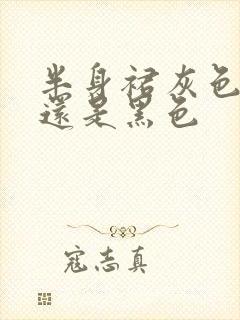 半身裙灰色
還是黑色
寇志真